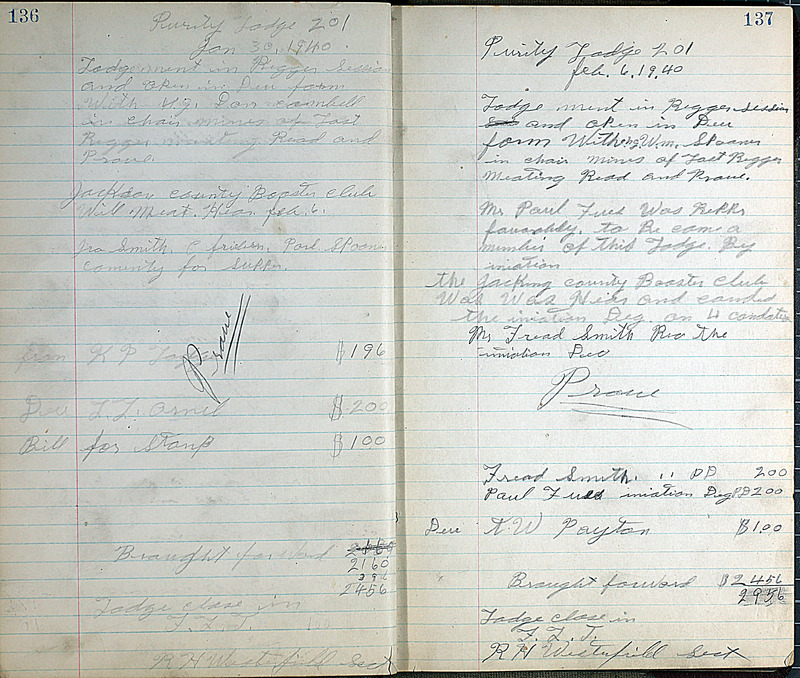 136
Purity Lodge 201
Jan 30, 1940.
Lodge ment in Regger Session
and open in Deu form
With Don cambell
in chair mines of Last
Regger meating Read and
Prove.
Jackson county Booster club
Will Meat. Hear. feb. 6.
Ira Smith. C Porl. Spooner
comenty for Supper.
Prove
from K P $196
Deu L.L. Arnel $200
Bill for Stamp $100
Braught forward
2160
296
2456
Lodge close in
F. L. T.
R H Westerfield Sect
137
Purity Lodge 201
feb. 6, 1940
Lodge ment in Regger session
and open in Deu
form With Wm. Spooner
in chair mines of Last Regger
Meating Read and Prove.
Mr Paul Was
favorbly. to Be came a
member of this Lodge. By
iniation
the Jacking county Booster club
Was Was Hear and
the iniation Deg. on 4
Mr Fread Smith Rec the
iniation Deg
Prove
Fread Smith. .. PD 200
Paul iniation Deg PD 200
Deu K. W Payton $1.00
Braught forward $2456
2956
Lodge close in
F. L. T.
R H Westerfield Sect